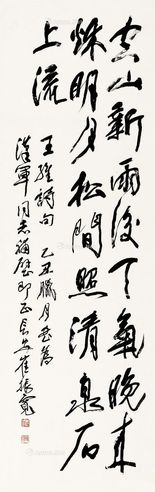 空山新雨后天气晚来
秋明月松間照清泉石
上流
王維詩句 乙丑臘月書為
漢軍同志補壁即正 長安崔振寬